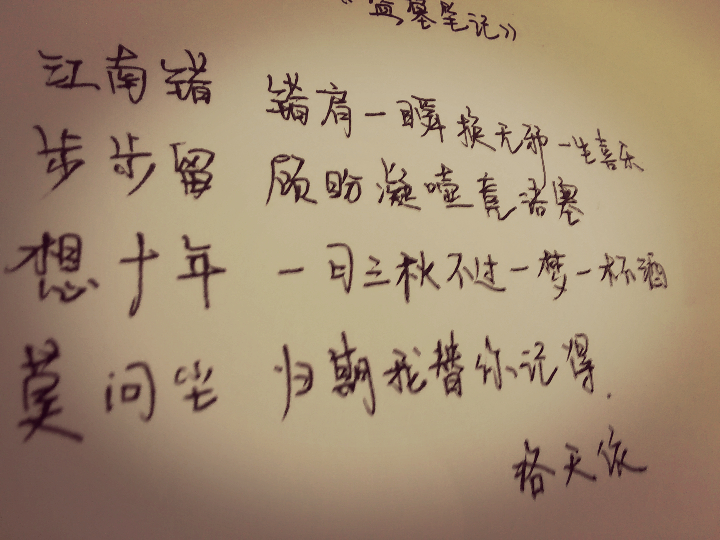 《盗墓笔记》
江南错 错肩一瞬换无邪一生喜乐
步步留 顾盼凝噎竟语塞
想十年 一日三秋不过一梦一杯酒
莫问尘 归期我替你记得.
格天依